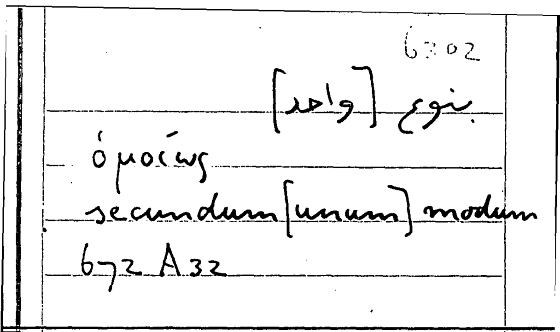 6302
بنوع [واحد]
ὁμοίως
secundum [unum] modum
672 A 32